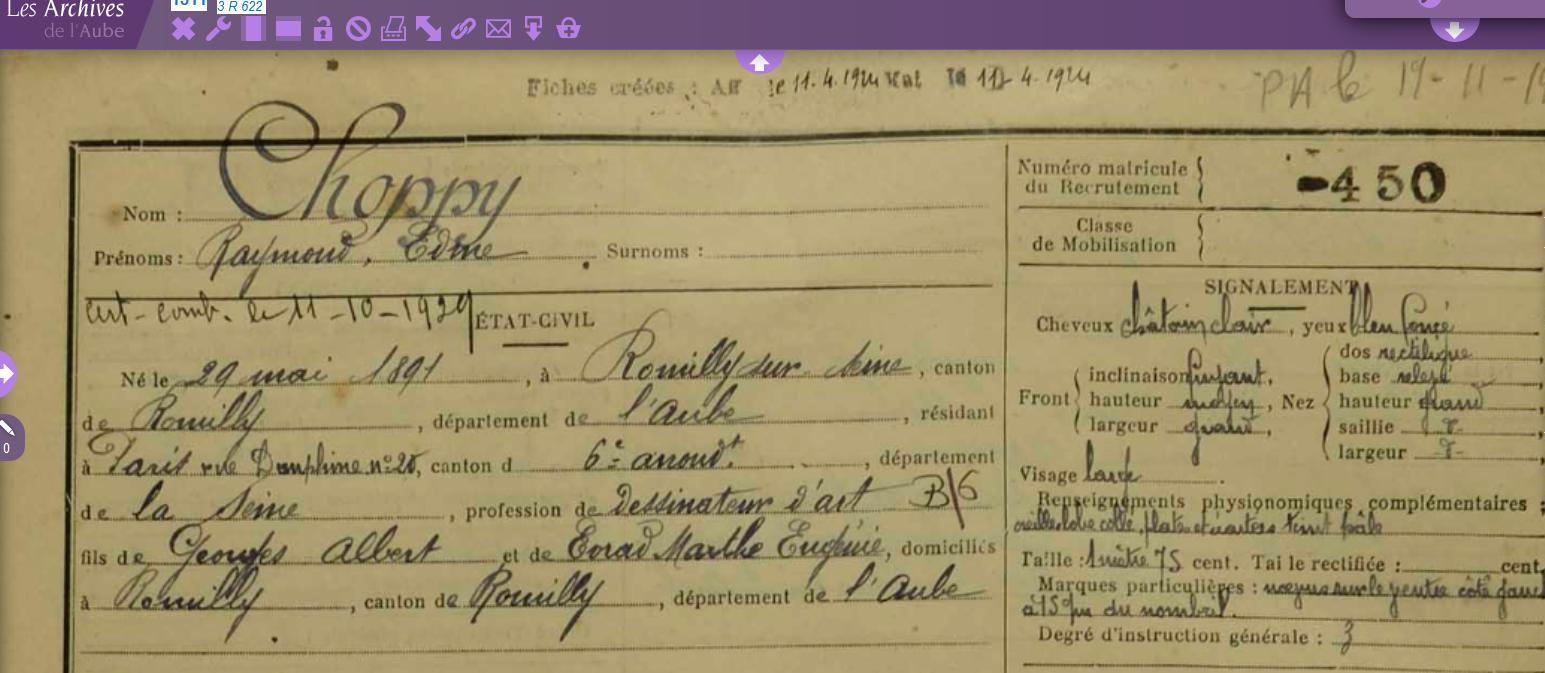 Les Archives
de l'Aube
1911
3 R 622
Fiches créées : Aff le 11.4.1924 Mat le 11-4.1924
PA le 19-11-19
Nom : Choppy
Prénoms : Raymond, Edme Surnoms :
Cart-comb. le 11-10-1929
ÉTAT-CIVIL
Né le 29 mai 1891, à Romilly sur Seine, canton
de Romilly, département de l'Aube, résidant
à Paris rue Dauphine n° 20, canton d 6e arrondt., département
de la Seine, profession de Dessinateur d'art B/6
fils de Georges Albert et de Marthe Eugénie, domiciliés
à Romilly, canton de Romilly, département de l'Aube
Numéro matricule
du Recrutement
450
Classe
de Mobilisation
SIGNALEMENT
Cheveux châtain clair, yeux bleu foncé
Front
inclinaison fuyant,
hauteur moyen,
largeur grand,
Nez
dos rectiligne,
base relevé
hauteur grand
saillie
largeur
Visage large
Renseignements physionomiques complémentaires :
oreille lobe collé, teint pâle
Taille : 1 mètre 75 cent. Taille rectifiée : cent.
Marques particulières : sur le ventre côté gauc
à 15 du nombril.
Degré d'instruction générale : 3
0